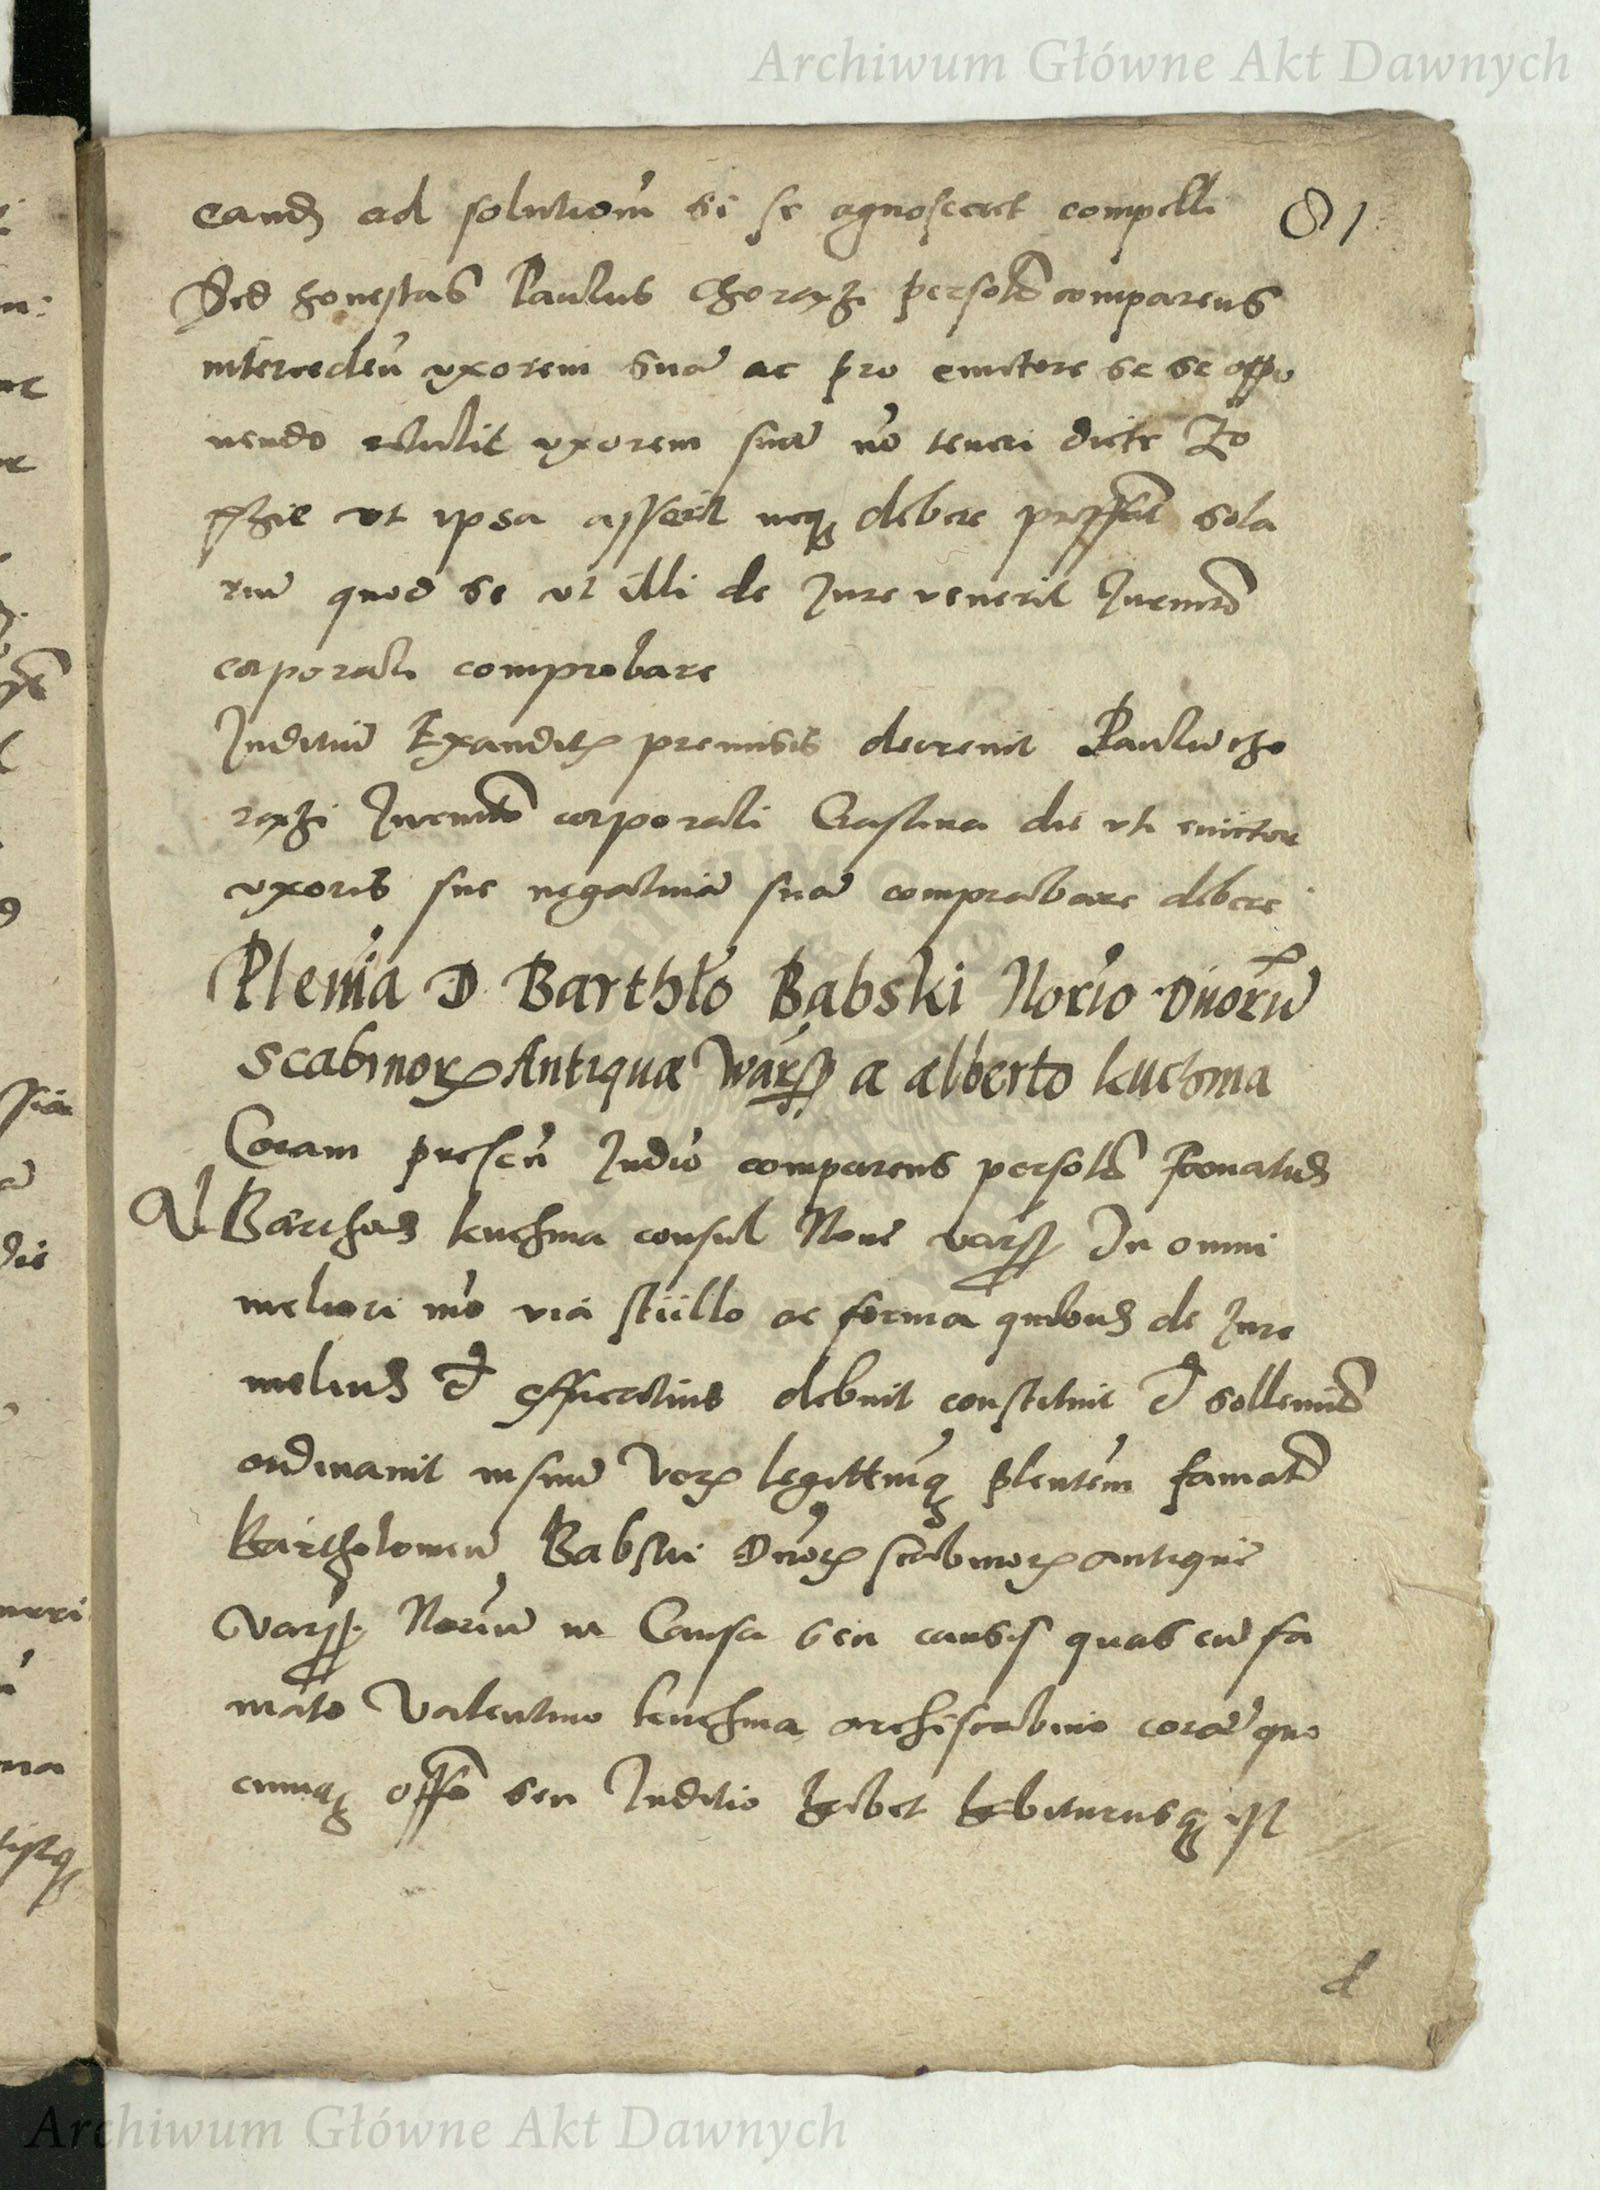 Archiwum Główne Akt Dawnych
81
eand ad solutiom si se agnosceret compelli
Sed honestus Paulus Choraxi persolr comparens
intercedeñ uxorem sua ac pro evictore se se oppo
nendo retulit uxorem sua no teneri dicte Zo
phie ut ipsa asserit neq debere sola
riu quod se ut illi de Jure venerit Iuramto
corporali comprobare
Juditiu Exauditis premissis decrevit Paulu cho
raxi Iuramto corporali Crastina die uti evictore
uxoris sue negativa sua comprobare debere
Plenia D Barthlo Babski Norio Dnoru
Scabinor Antiqua Wars a alberto kuchma
Coram presen Judio comparens persolr Famatus
Al Barthos kuchma consul Nove vars In omni
meliori mo via stiillo ac forma quibus de Jure
melius et efficatius debuit constituit et sollemnr
ordinavit in suu Ver legittimq plentem famatu
Bartholomeu Babski Dnor scabinor antique
Vars Noriu in Causa seu causis quas cu fa
mato Valentino kuchma archiscabino cora quo
cumq offo seu Juditio habet habiturusq est
d
Archiwum Główne Akt Dawnych